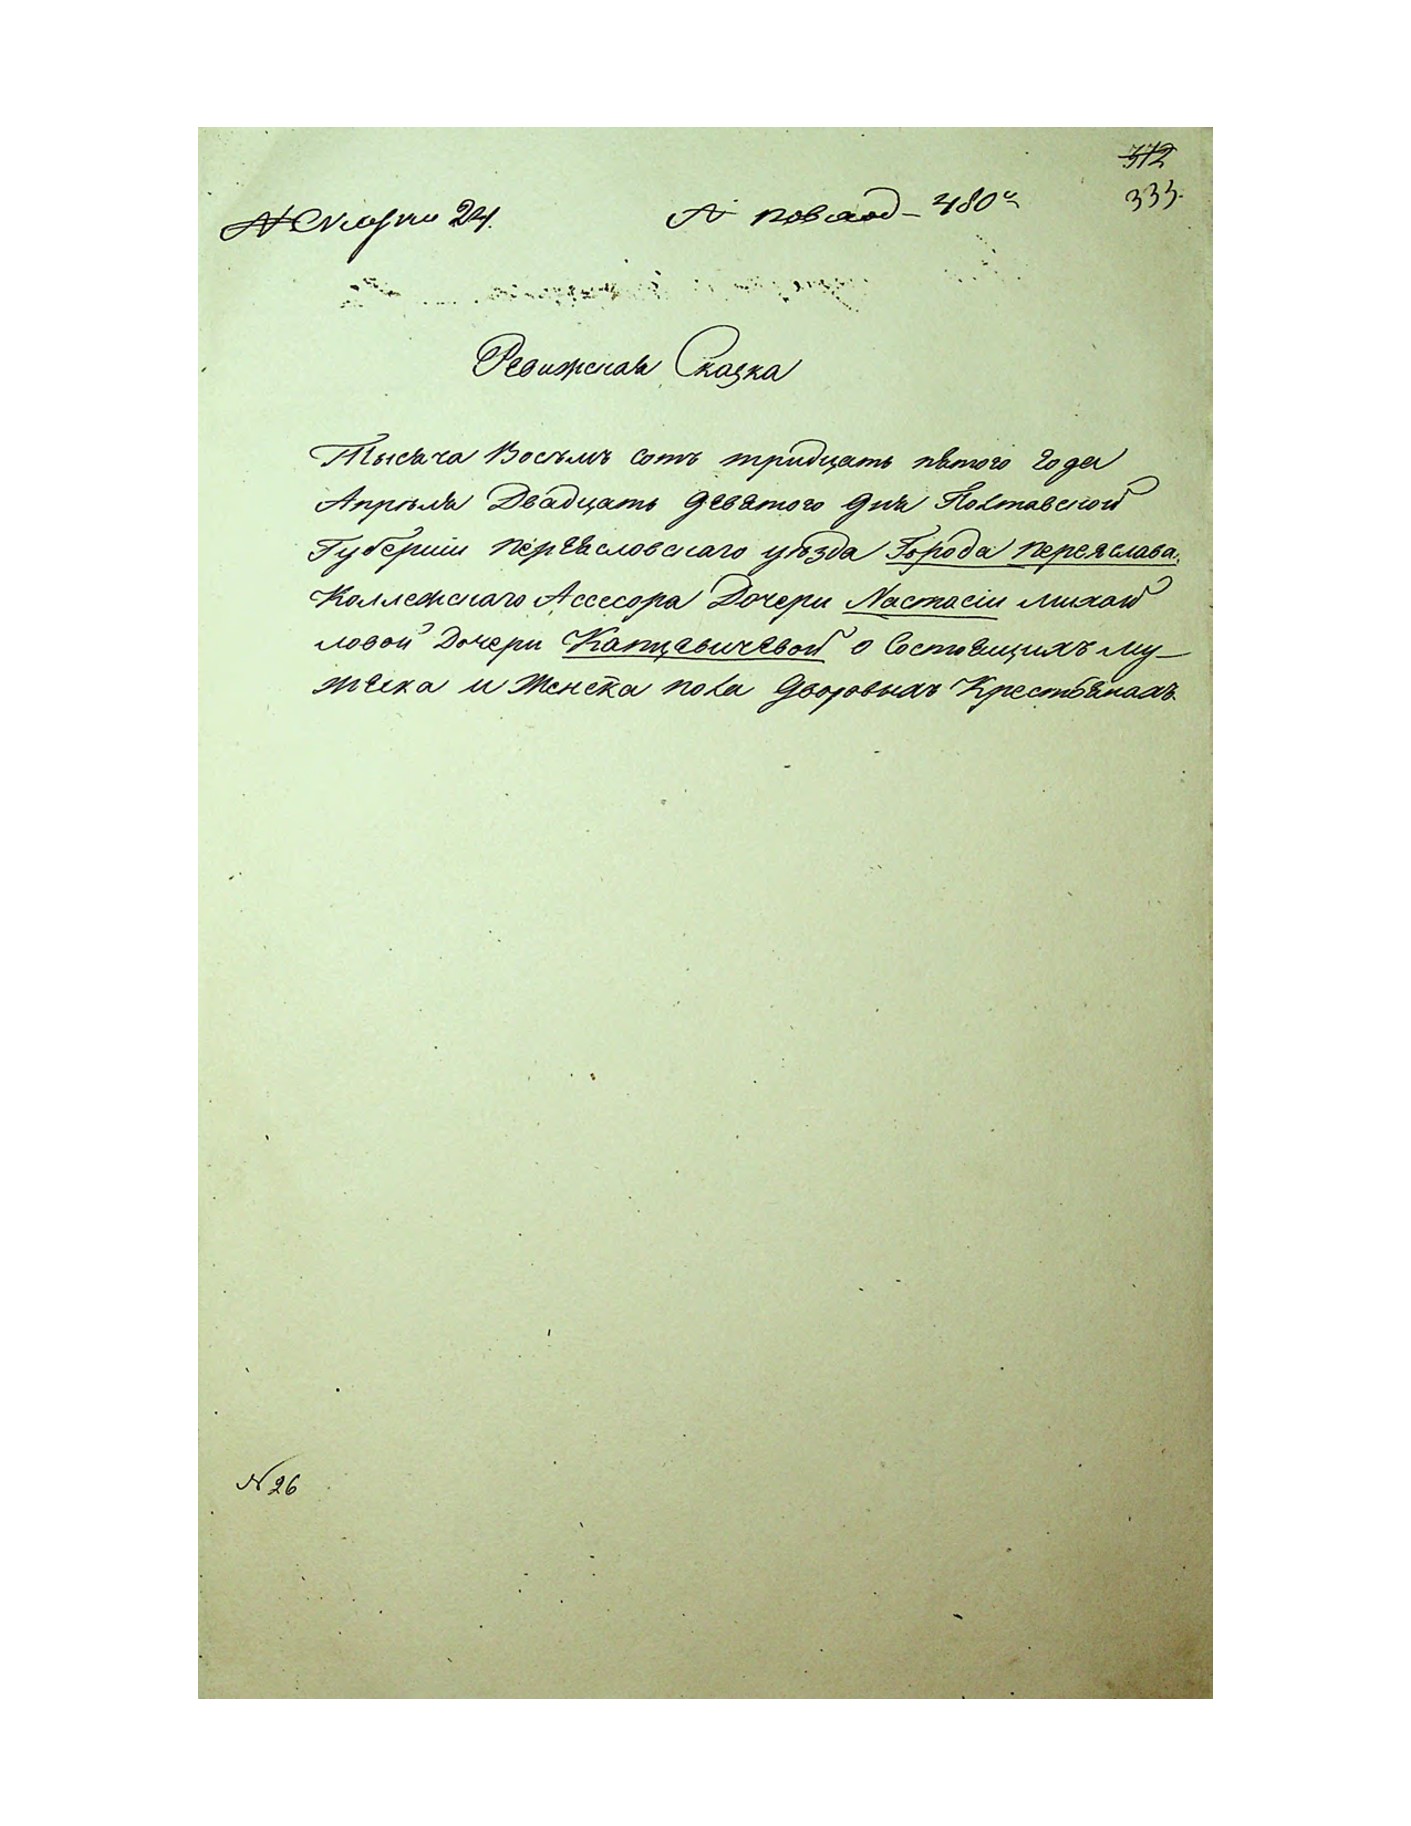 372
333.
№ 24.
№ 480й
Ревижская Сказка
Тысяча Восемъ сотъ тридцать пятого Года
Апреля Двадцать девятого дня Полтавской
Губернии переясловскаго уезда Города переяслава.
Коллежскаго Ассесора Дочери Настасіи михай
ловой Дочери Капцевичевой о Состоящихъ му–
жеска и Женска пола Дворовыхъ Крестьянахъ.
№ 26